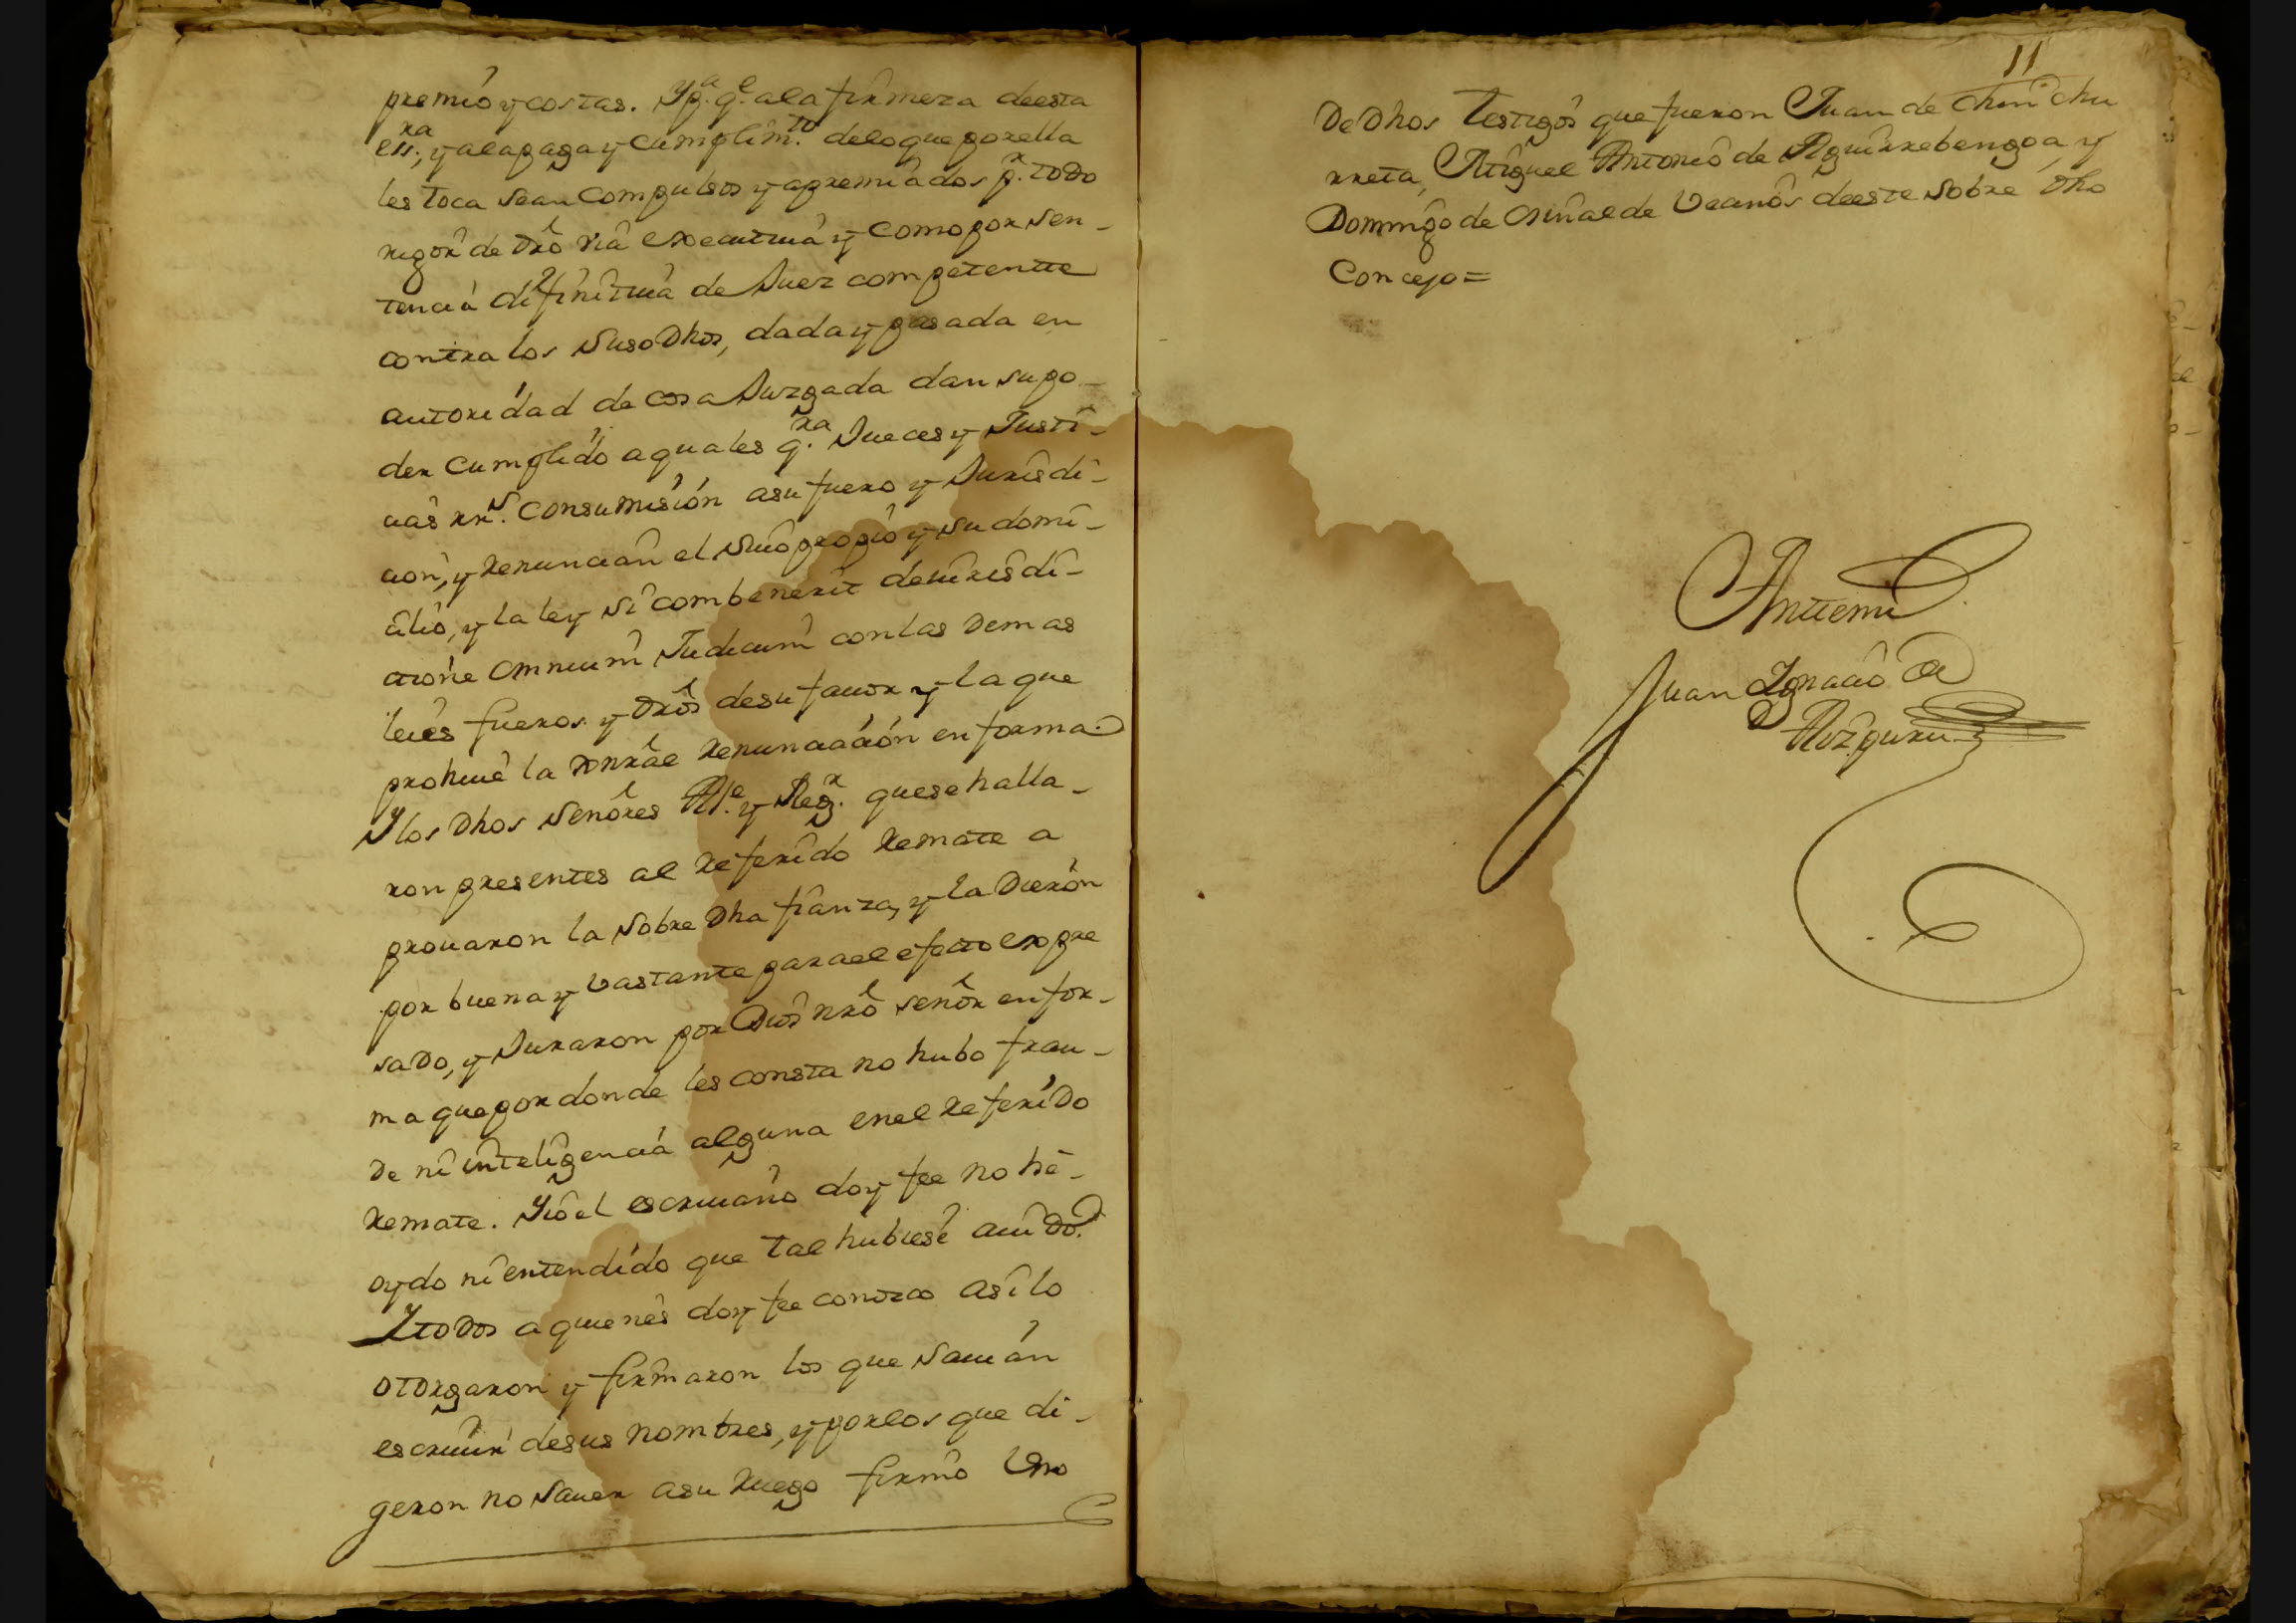 premio y costas. Y p.ª q.e a la firmeza de esta
ess.ra, y a la paga y cumplim.to de lo que por ella
les toca sean compulsos y apremiados p.r todo
rigor de dro via executiva y como por sen-
tencia difinitiva de Juez competentte
contra los suso dhos, dada y pasada en
autoridad de cosa Juzgada dan su po-
der cumplido a quales q.ra Jueces y Justi-
cias rr.s con sumision a su fuero y Jurisdi-
cion, y renuncian el suio propio y su domi-
cilio, y la ley si combenerit de iurisdi-
ctione omnium Judicum con las demas
leies fueros y dros de su favor y la que
prohive la xnral renunciacion en forma.
Y los dhos señores Al.e y Reg.r que se halla-
ron presentes al referido remate a
provaron la sobre dha fianza, y la dieron
por buena y vastante para el efecto expre
sado, y Juraron por Dios nro señor en for-
ma que por donde les consta no hubo frau-
de ni inteligencia alguna en el referido
remate. Yo el escrivano doy fee no he
oydo ni entendido que tal hubiese avido.
Y todos a quienes doy fee conozco asi lo
otorgaron y firmaron los que savian
escrivir de sus nombres, y por los que di-
geron no saver a su ruego firmo uno
11
De dhos testigos que fueron Juan de Chinchu
rreta, Miguel Antonio de Aguirrebengoa y
Domingo de Osinalde vecinos de este sobre dho
Concejo =
Anttemi
Juan Ignacio de
Aizpuru